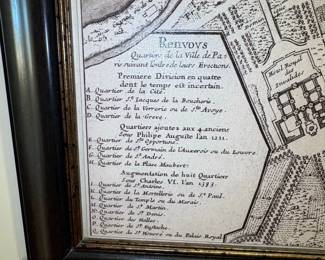 Renvoys
Quartiers de la Ville de Pa-
ris suivant l'ordre de leurs Erections.
Premiere Division en quatre
dont le temps est incertain.
A. Quartier de la Cité.
B. Quartier St. Jacques de la Boucherie.
C. Quartier de la Verrerie ou de Ste. Avoye
D. Quartier de la Greve.
Quartiers ajoutes aux 4 anciens
sous Philipe Auguste l'an 1211.
E. Quartier de Ste. Oportune.
F. Quartier de St. Germain de l'Auxerois ou du Louvre.
G. Quartier de St. André.
Quartier de la Place Maubert.
Augmentation de huit Quartiers
sous Charles VI. l'an 1383.
I. Quartier de St. Antoine.
Quartier de la Mortellerie ou de St. Paul.
Quartier du Temple ou du Marais.
M. Quartier de St. Martin.
N. Quartier de St. Denis.
Quartier des Halles.
P. Quartier de St. Eustache.
Q. Quartier de St. Honoré ou du Palais Royal
Hôtel Royal
des
Invalides